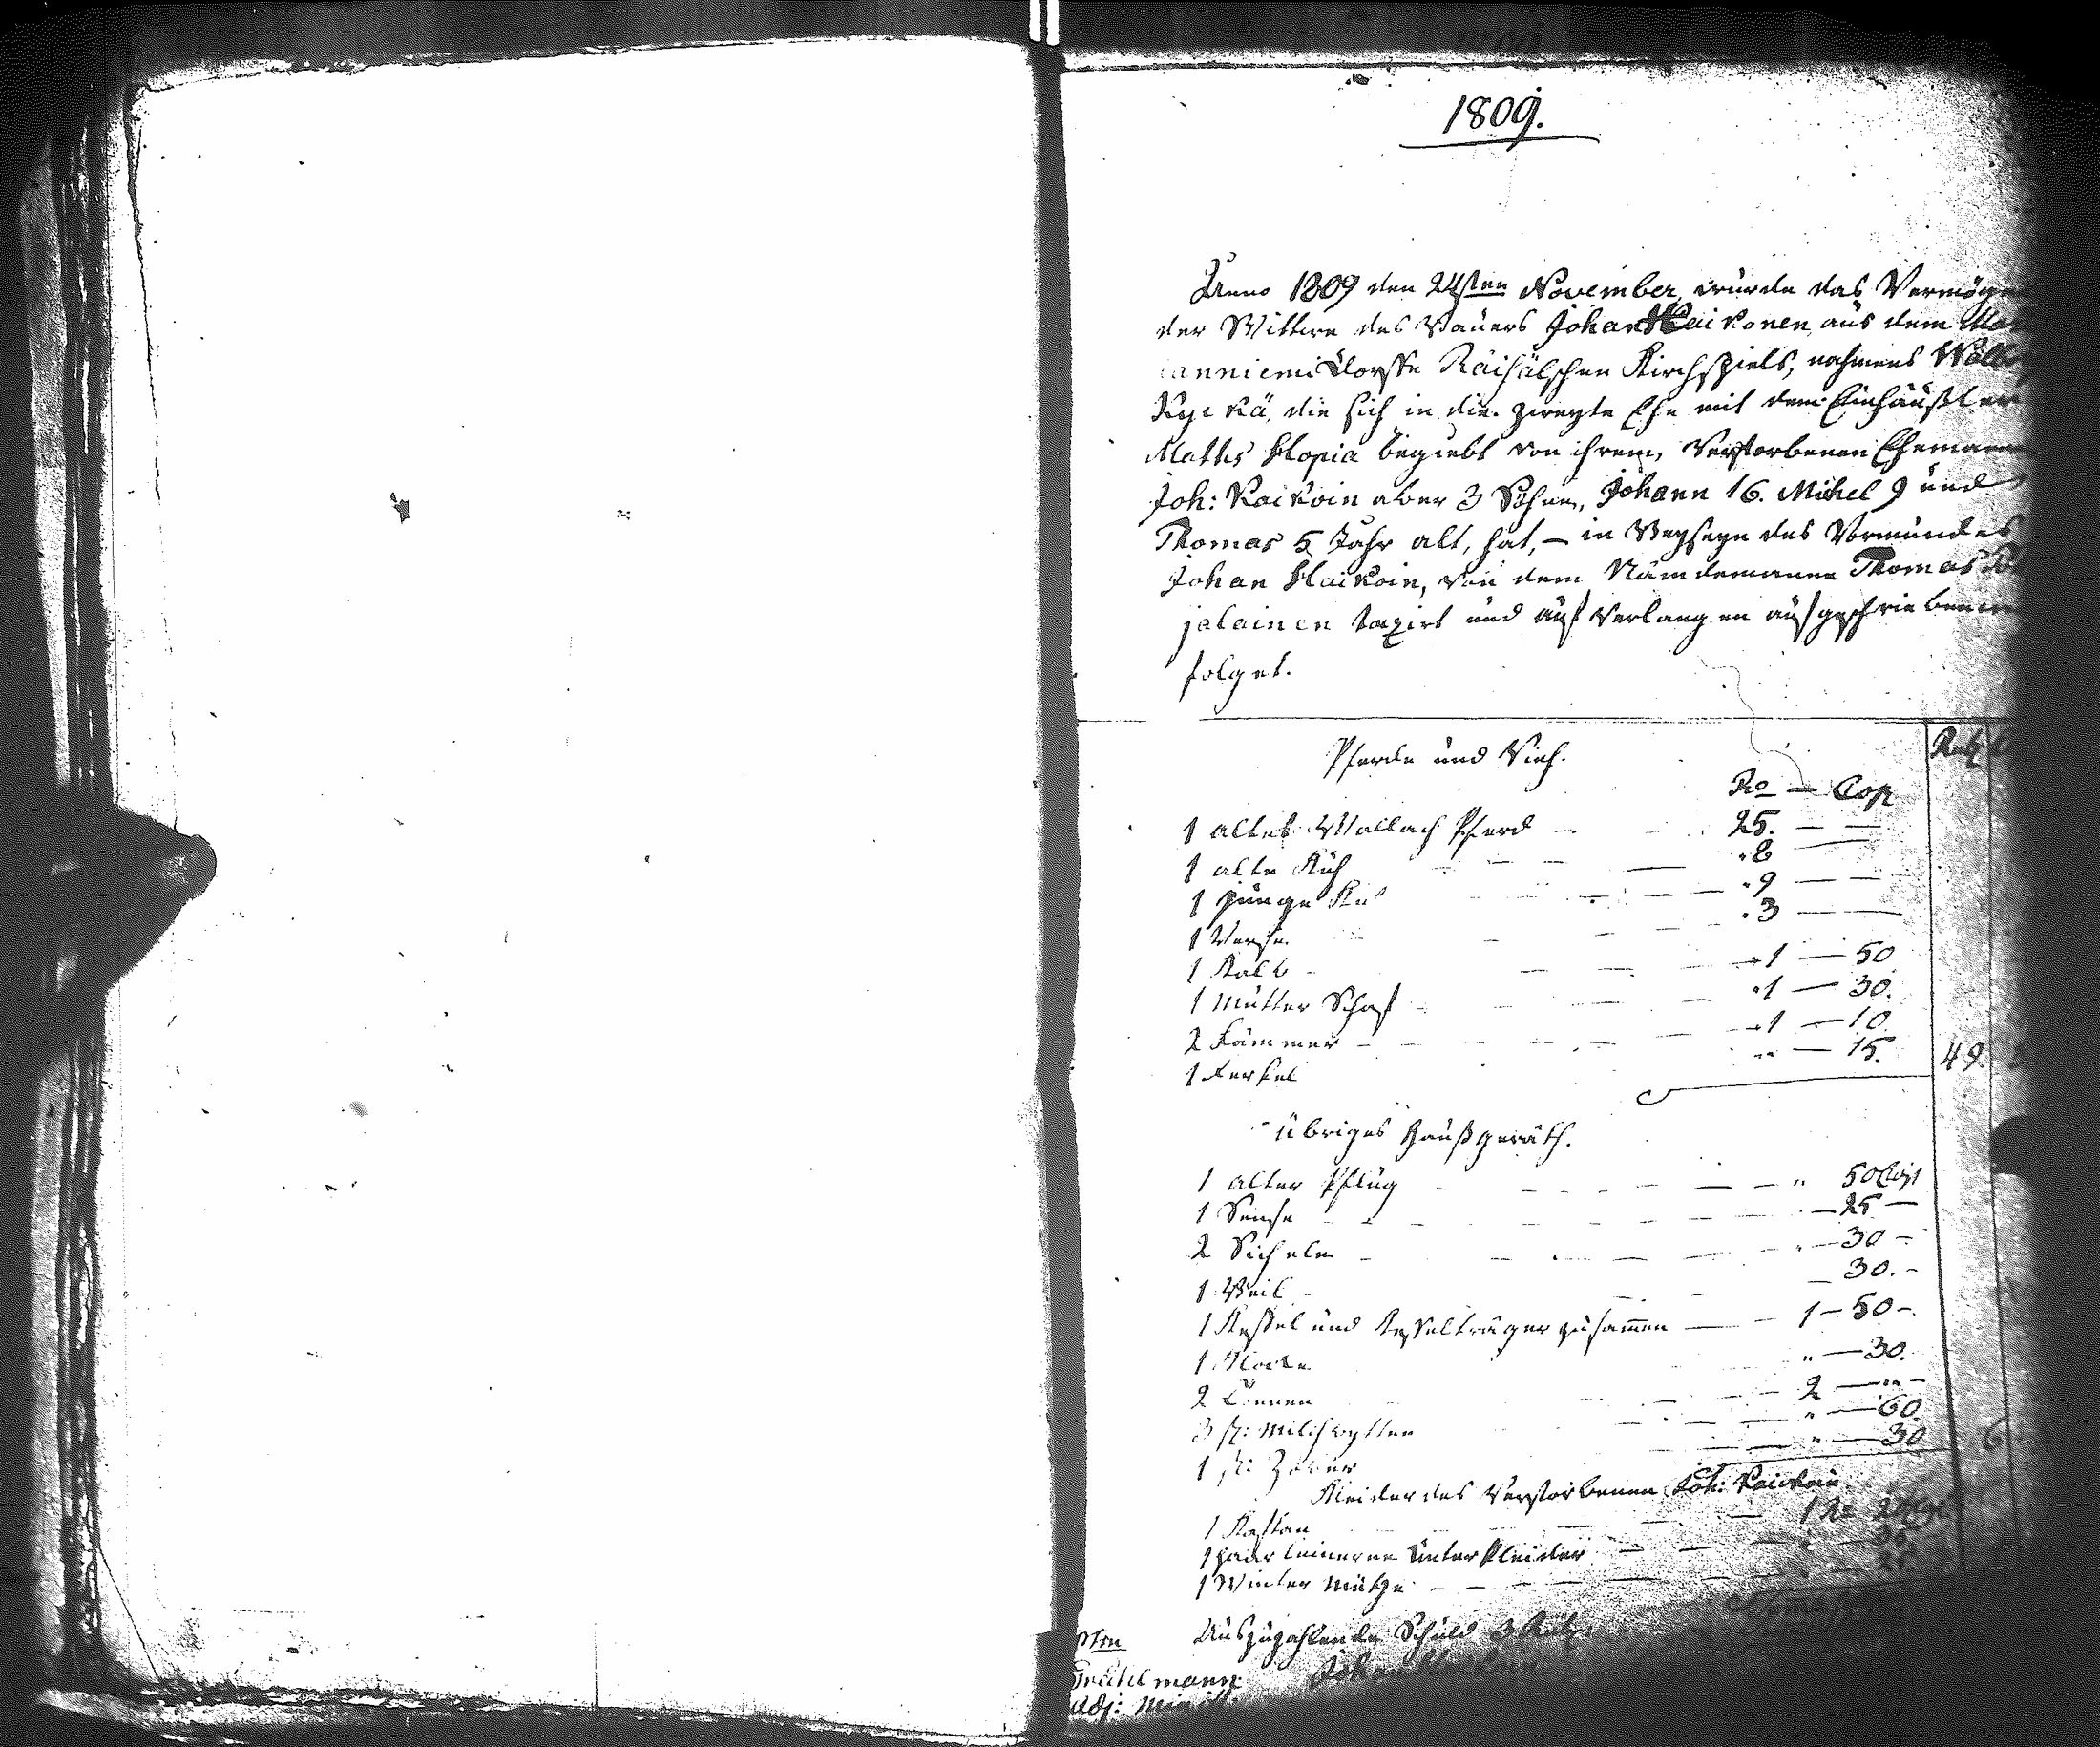 1809.
Anno 1809 den 24sten November, wurde das Vermögen
der Wittwe des Bauers Johan Kaikonen aus dem
anniemi Dorffe Räisälschen Kirchspiels, nahmens
Kyikä, die sich in die zweyte Ehe mit dem Einhäußler
Matts Hopia begiebt von ihrem, verstorbenen Ehemann
Joh: Kaikoin aber 3 Söhne, Johann 16. Michel 9 und
Thomas 5 Jahr alt, hat, — in Beyseyn des Vormundes
Johan Kaikoin, von dem Nämdemanne Thomas
jalainen taxirt und auf Verlangen aufgeschrieben
folget.
Pferde und Vieh. Rub
Ro — Cop
1 altes Wallach Pferd — 25. — —
1 alte Kuh — 8 —
1 junge Kuh — 9 — —
1 Verse — 3 —
1 Kalb — 1 — 50
1 Mutter Schaf — 1 — 30.
2 Lämmer — 1 — 10
1 Ferkel „ — 15. 49.
übriges Haußgeräth.
1 alter Pflug — „ 50 Cop
1 Sense — 25 —
2 Sicheln — 30 —
1 Beil — 30. —
1 Kessel und Kesselträger zusammen — 1 — 50 —
1 — 30.
2 — 2 — „ —
3 st: Milchbytten — „ — 60.
1 st: Zober — „ — 30 6
Kleider des verstorbenen Joh: Kaikoin
1 Kaftan — 1 Ro
1 paar leinerne Unterkleider —
1 Winter Mütze —
Auszuzahlende Schuld 3 Rub
Johan
adj: Minist: